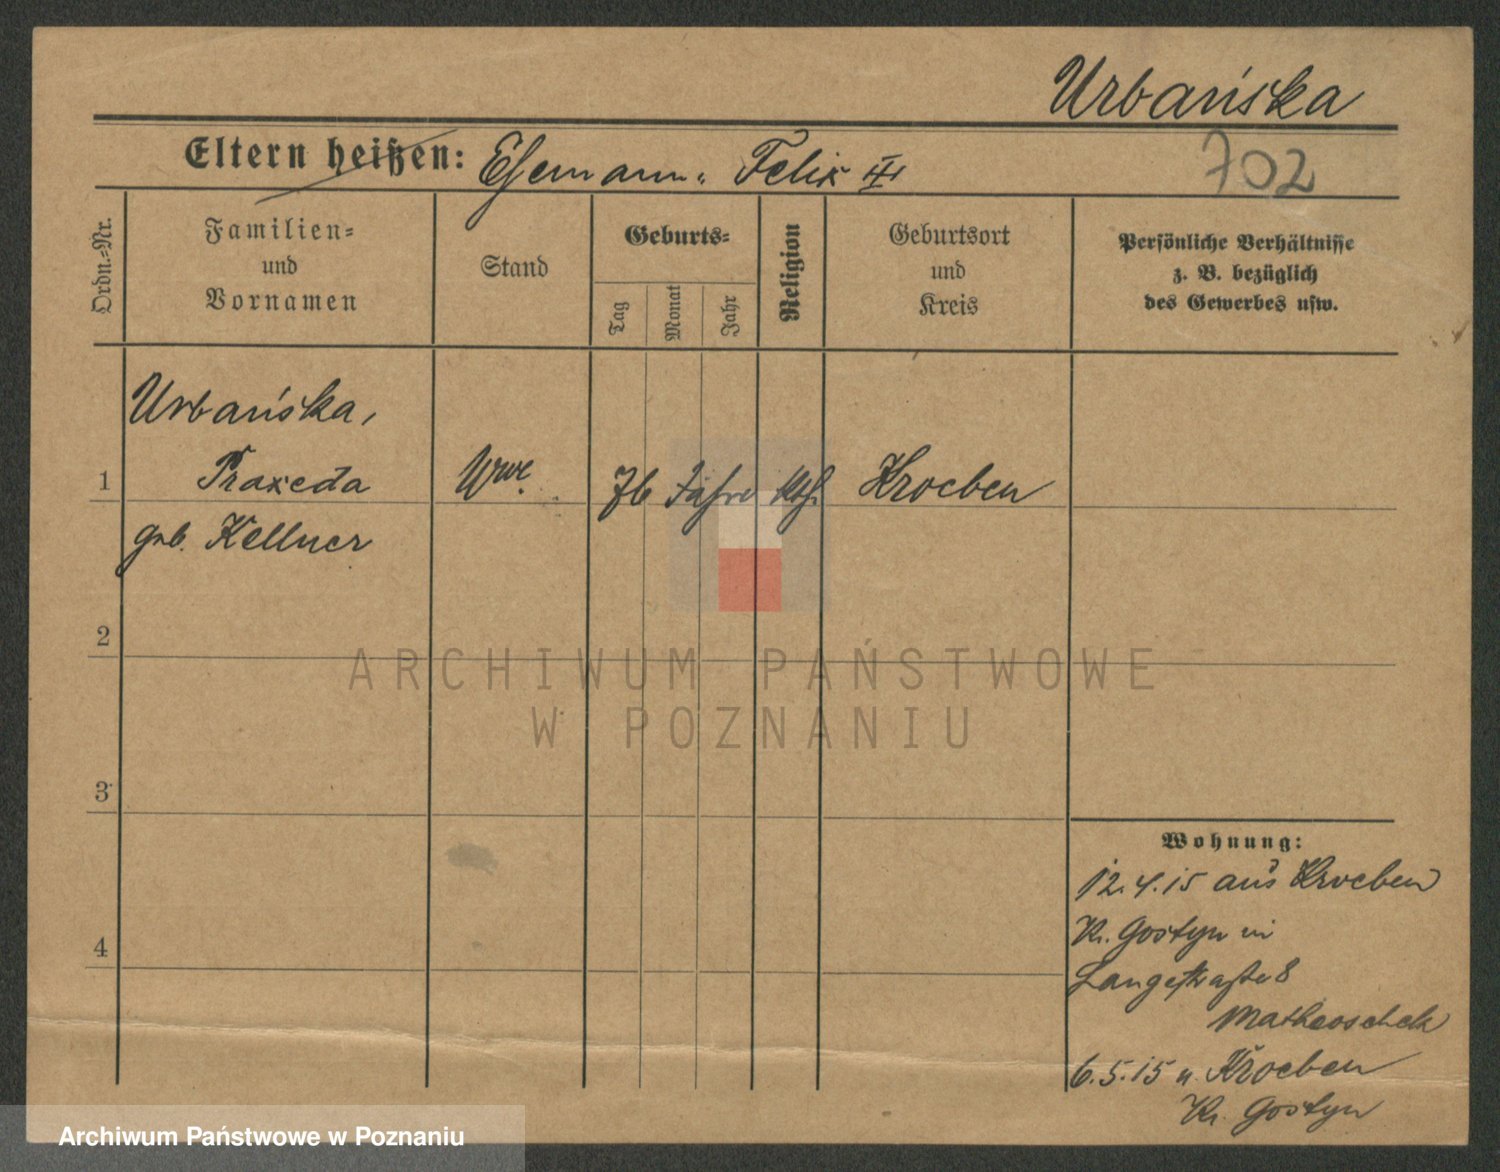 Urbańska
Eltern heißen: Ehemann: Felix III
702
Ordn.-Nr.
Familien-
und
Vornamen
Stand
Geburts-
Tag
Monat
Jahr
Religion
Geburtsort
und
Kreis
Persönliche Verhältnisse
z. B. bezüglich
des Gewerbes usw.
Urbańska,
1 Praxeda Wwe. 76 Jahre kth. Kroeben
geb. Kellner
2
ARCHIWUM PAŃSTWOWE
W POZNANIU
3
Wohnung:
12.4.15 aus Kroeben
Kr. Gostyn in
Langestraße 8
4
Matheoschek
6.5.15 n. Kroeben
Kr. Gostyn
Archiwum Państwowe w Poznaniu